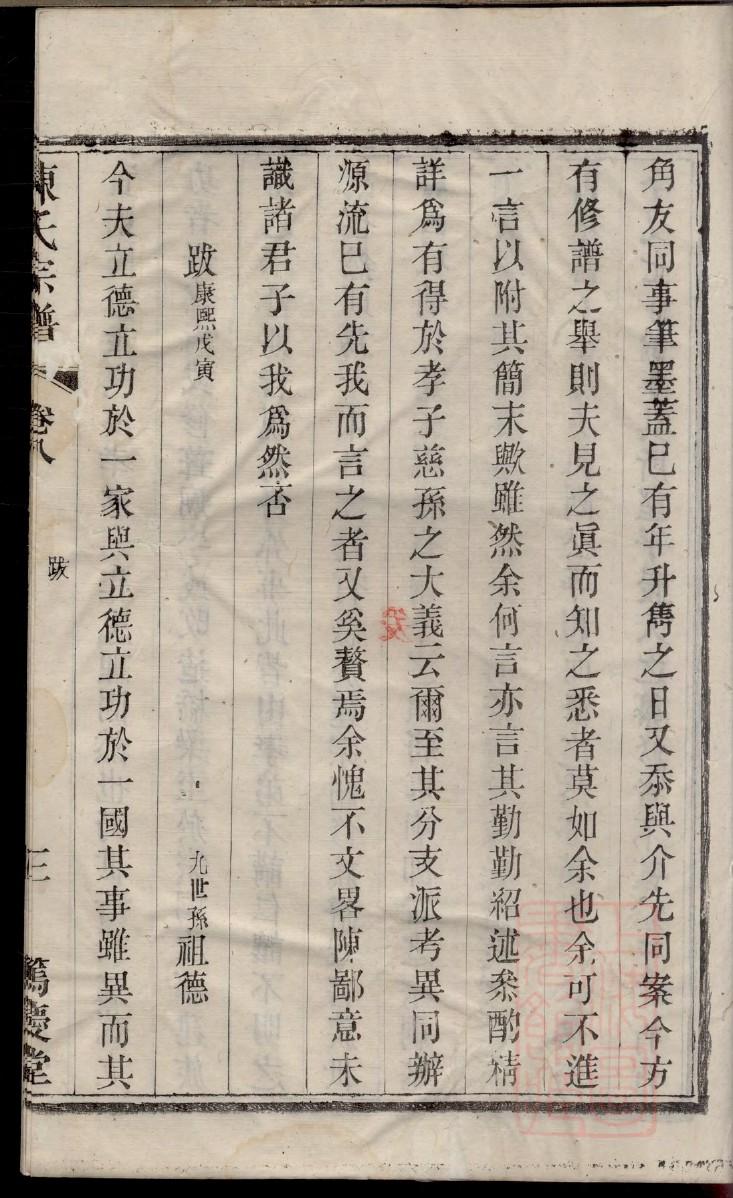 角友同事筆墨蓋巳有年升雋之日又忝與介先同案今方
有修譜之舉則夫見之眞而知之悉者莫如余也余可不進
一言以附其簡末歟雖然余何言亦言其勤勤紹述叅酌精
詳爲有得於孝子慈孫之大義云爾至其分支派考異同辦
源流巳有先我而言之者又奚贅焉余愧不文畧陳鄙意未
識諸君子以我爲然否
跋康熙戊寅
九世孫祖德
今夫立德立功於一家與立德立功於一國其事雖異而其
陳氏宗譜 卷八 跋 三 篤慶堂